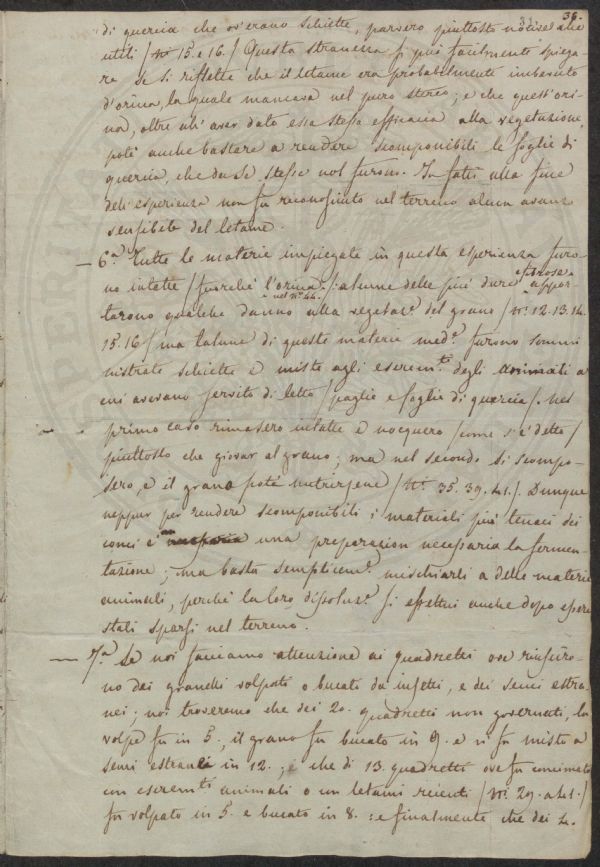 31. 36.
di quercia che v'erano schiette, parvero piuttosto nocive che
utili /Nⁱ 15. e 16./ Questa stranezza si può facilmente spiega-
re se si riflette che il letame era probabilmente imbevuto
d'orina, la quale mancava nel puro sterco; e che quest'ori-
na, oltre all'aver dato essa stessa efficacia alla vegetazione,
potè anche bastare a rendere scomponibili le foglie di
quercia, che da se stesse nol furono. In fatti alla fine
dell'esperienza non fu riconosciuto nel terreno alcun avanzo
sensibile del letame.
— 6.ª Tutte le materie impiegate in questa esperienza furo-
no intatte /fuorchè l'orina nel n.º 44./: alcune delle più dure e fibrose appor-
tarono qualche danno alla vegetaz.e del grano /Nⁱ. 12. 13. 14.
15. 16/ ma talune di queste materie med.e furono sommi
nistrate schiette e miste agli escrem.ti degli animali a
cui avevano servito di letto /paglia e foglie di quercia/. Nel
primo caso rimasero intatte e nocquero /come s'è detto/
piuttosto che giovar al grano; ma nel secondo si scompo-
sero, e il grano potè nutrirsene /Nⁱ. 35. 39. 41./. Dunque
neppur per rendere scomponibili i materiali più tenaci dei
conci è una preparazion necessaria la fermen-
tazione; ma basta semplicem.e mischiarli a delle materie
animali, perchè la loro dissoluz.e si effettui anche dopo essere
stati sparsi nel terreno.
— 7.ª Se noi facciamo attenzione ai quadretti ove riusciro-
no dei granelli volpati o bucati da insetti, e dei semi estra-
nei; noi troveremo che dei 20. quadretti non governati, la
volpe fu in 5., il grano fu bucato in 9. e vi fu misto a
semi estranei in 12.; e che di 13. quadretti ove fu concimato
con escrem.ti animali o un letami recenti /Nⁱ. 29. a 41./
fu volpato in 5. e bucato in 8.: e finalmente che dei 4.